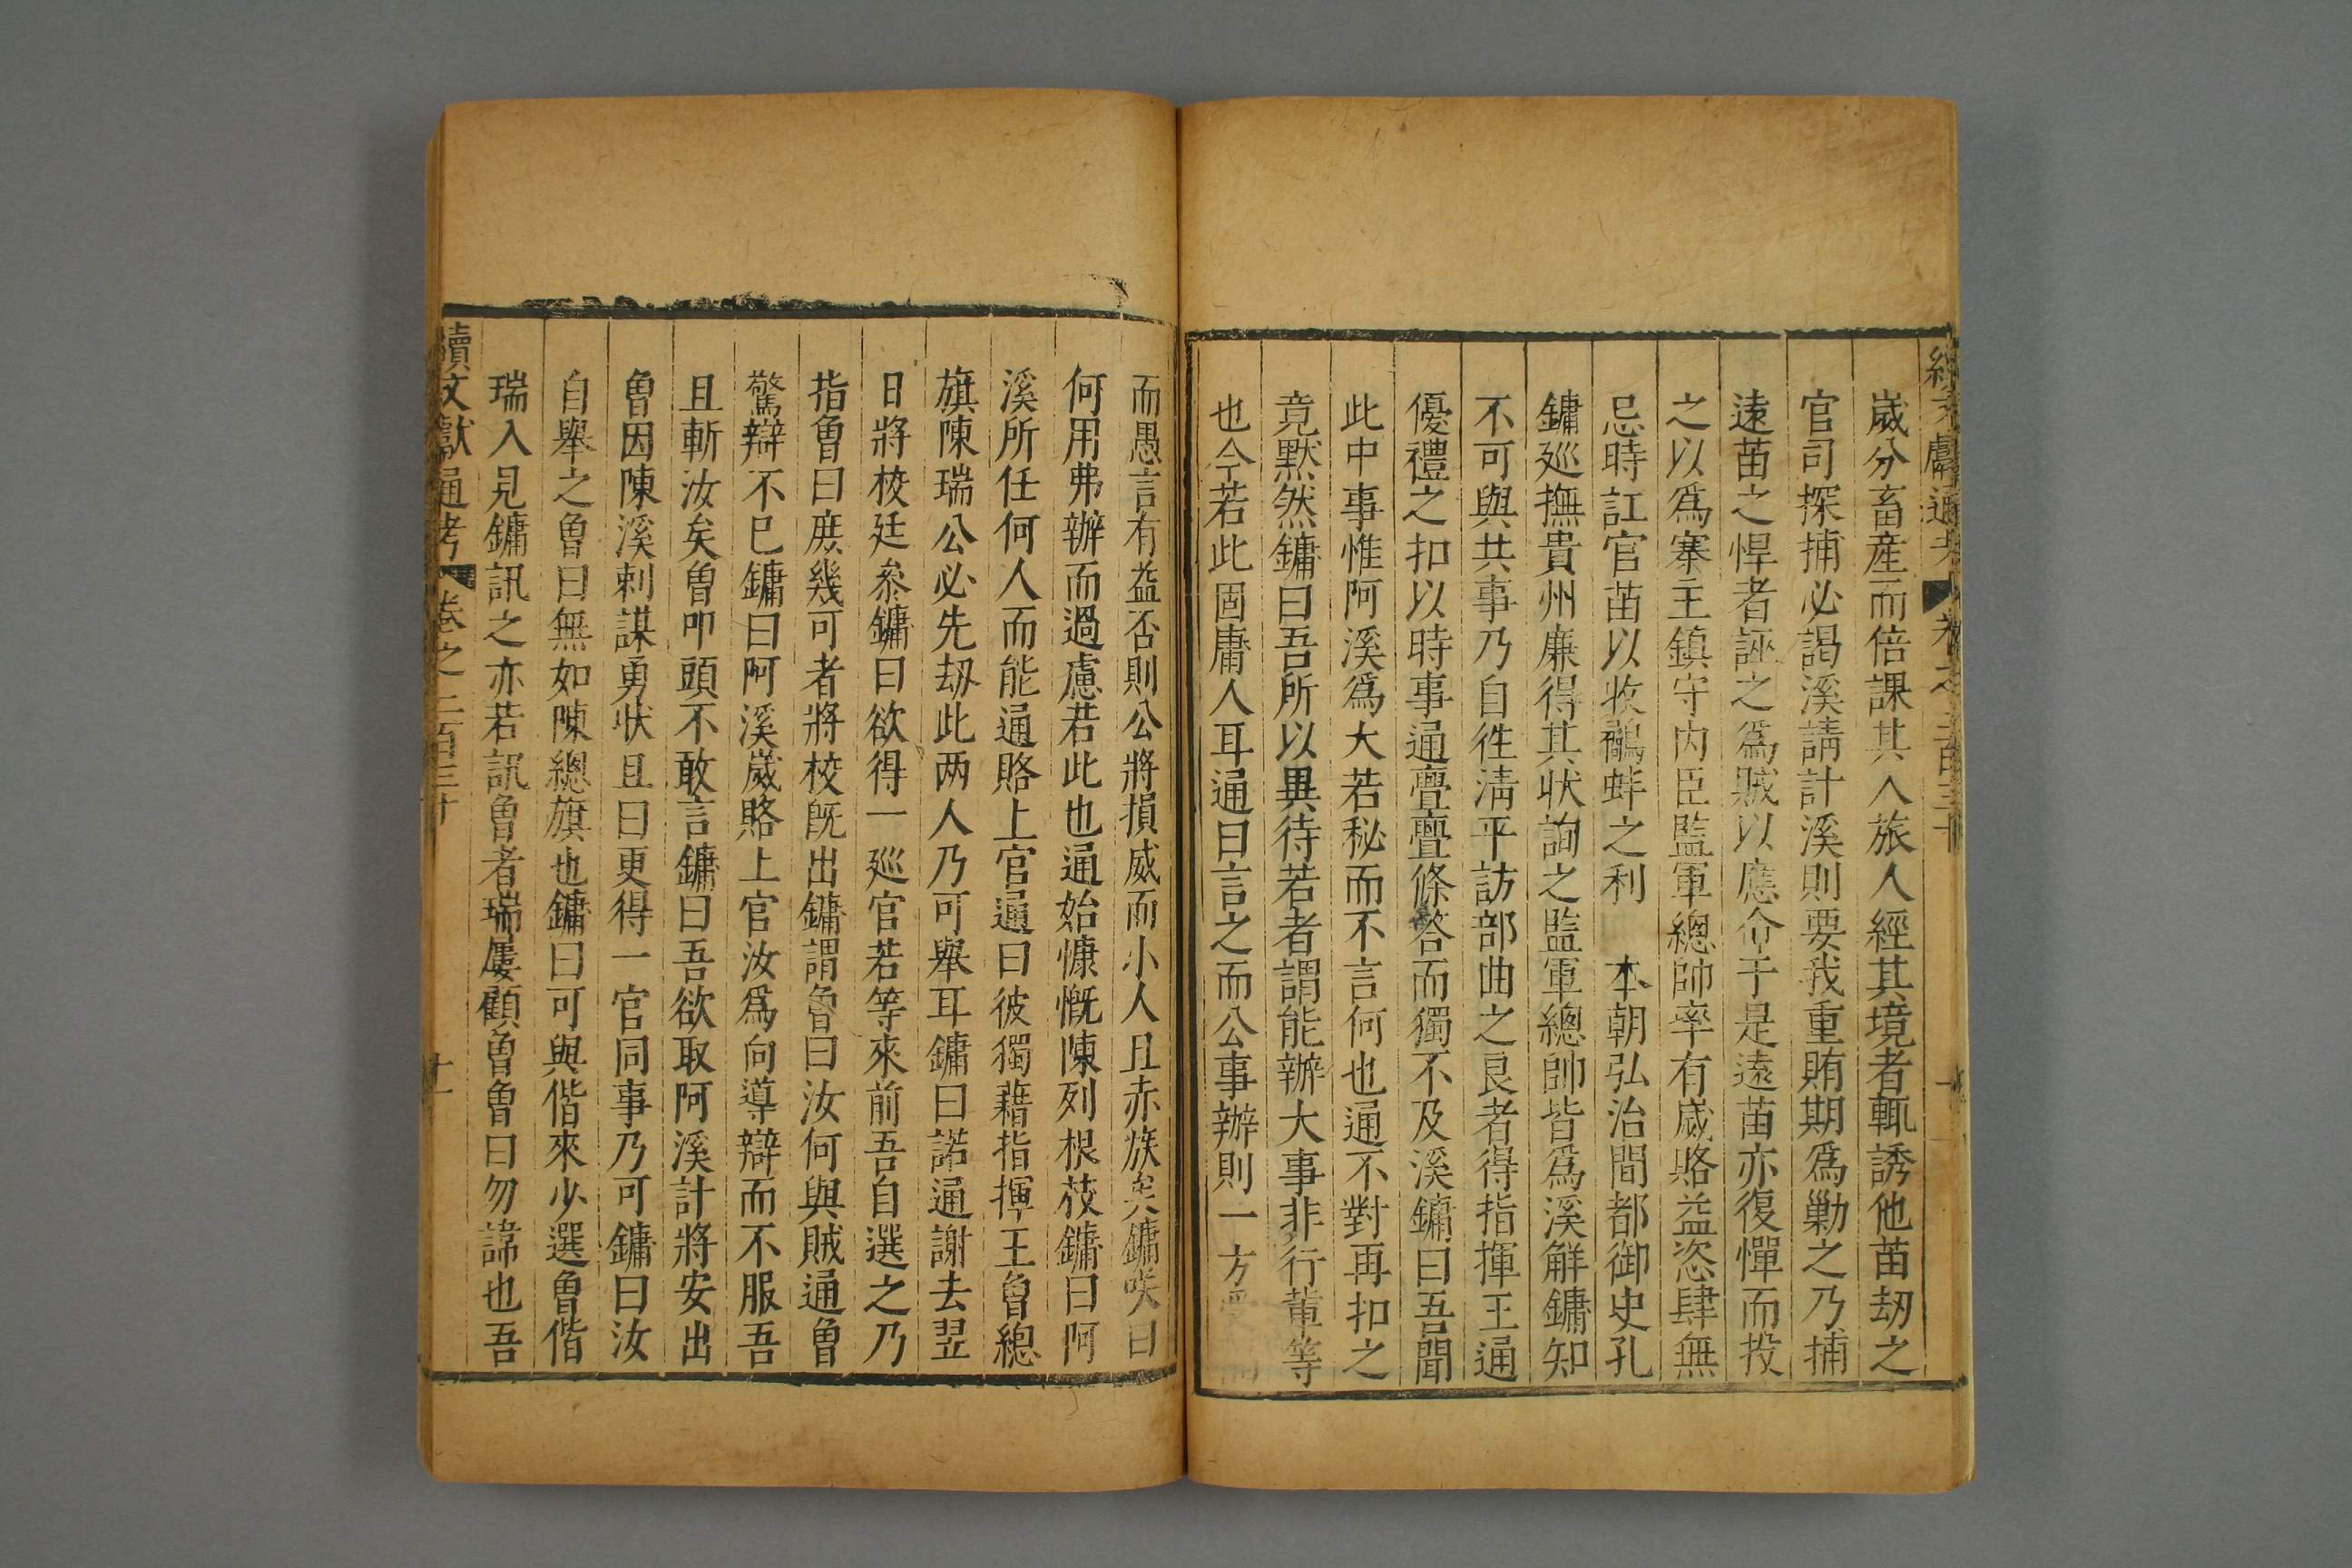 歲分畜產而倍課其入旅人經其境者輒誘他苗刼之
官司探捕必謁溪請計溪則要我重賄期爲勦之乃捕
遠苗之悍者誣之爲賊以應命于是遠苗亦復憚而投
之以爲寨主鎮守内臣監軍總帥率有歲賂益恣肆無
忌時訌官苗以收鷸蚌之利 本朝弘治間都御史孔
鏞廵撫貴州廉得其状詢之監軍總帥皆爲溪解鏞知
不可與共事乃自徃清平訪部曲之良者得指揮王通
優禮之扣以時事通亹亹條答而獨不及溪鏞曰吾聞
此中事惟阿溪爲大若秘而不言何也通不對再扣之
竟默然鏞曰吾所以異待若者謂能辦大事非行輩等
也今若此固庸人耳通曰言之而公事辦則一方受
而愚言有益否則公將損威而小人且赤族矣鏞咲曰
何用弗辦而過慮若此也通始慷慨陳列根枝鏞曰阿
溪所任何人而能通賂上官通曰彼獨藉指揮王曾總
旗陳瑞公必先刼此两人乃可舉耳鏞曰諾通謝去翌
日將校廷叅鏞曰欲得一廵官若等來前吾自選之乃
指曾曰庶幾可者將校旣出鏞謂曾曰汝何與賊通曾
驚辯不巳鏞曰阿溪歲賂上官汝爲向導辯而不服吾
且斬汝矣曾叩頭不敢言鏞曰吾欲取阿溪計將安出
曾因陳溪剌謀勇状且曰更得一官同事乃可鏞曰汝
自舉之曾曰無如陳總旗也鏞曰可與偕來少選曾偕
瑞入見鏞訊之亦若訊曾者瑞屢顧曾曾曰勿諱也吾
續文獻通考 卷之二百三十 十一